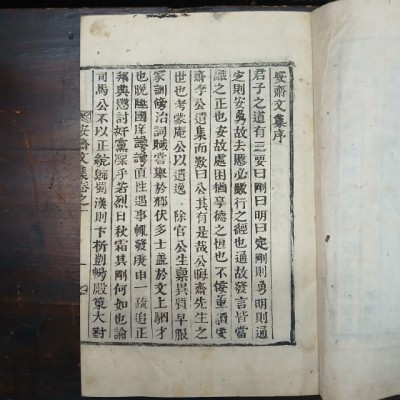 安齋文集序
君子之道有三要曰剛曰明曰定剛則勇明則通
定則安勇故去慝必嚴行之經也通故發言皆當
識之正也安故處困猶亨德之恒也不佞董讀安
齋李公遺集而歎曰公其有是哉公晦齋先生之
世也考蒙庵公以遺逸除官公生禀異質早服
家訓脩治詞賦嘗舉於鄕伏多士蓋於文上駟才
也晩陞國庠謇謇直性遇事輒發庚申一疏追正
邦典懲討好黨凜乎若烈日秋霜其剛何如也論
司馬公不以正統歸蜀漢則卞析剴暢殿策大對
安齋文集卷之一